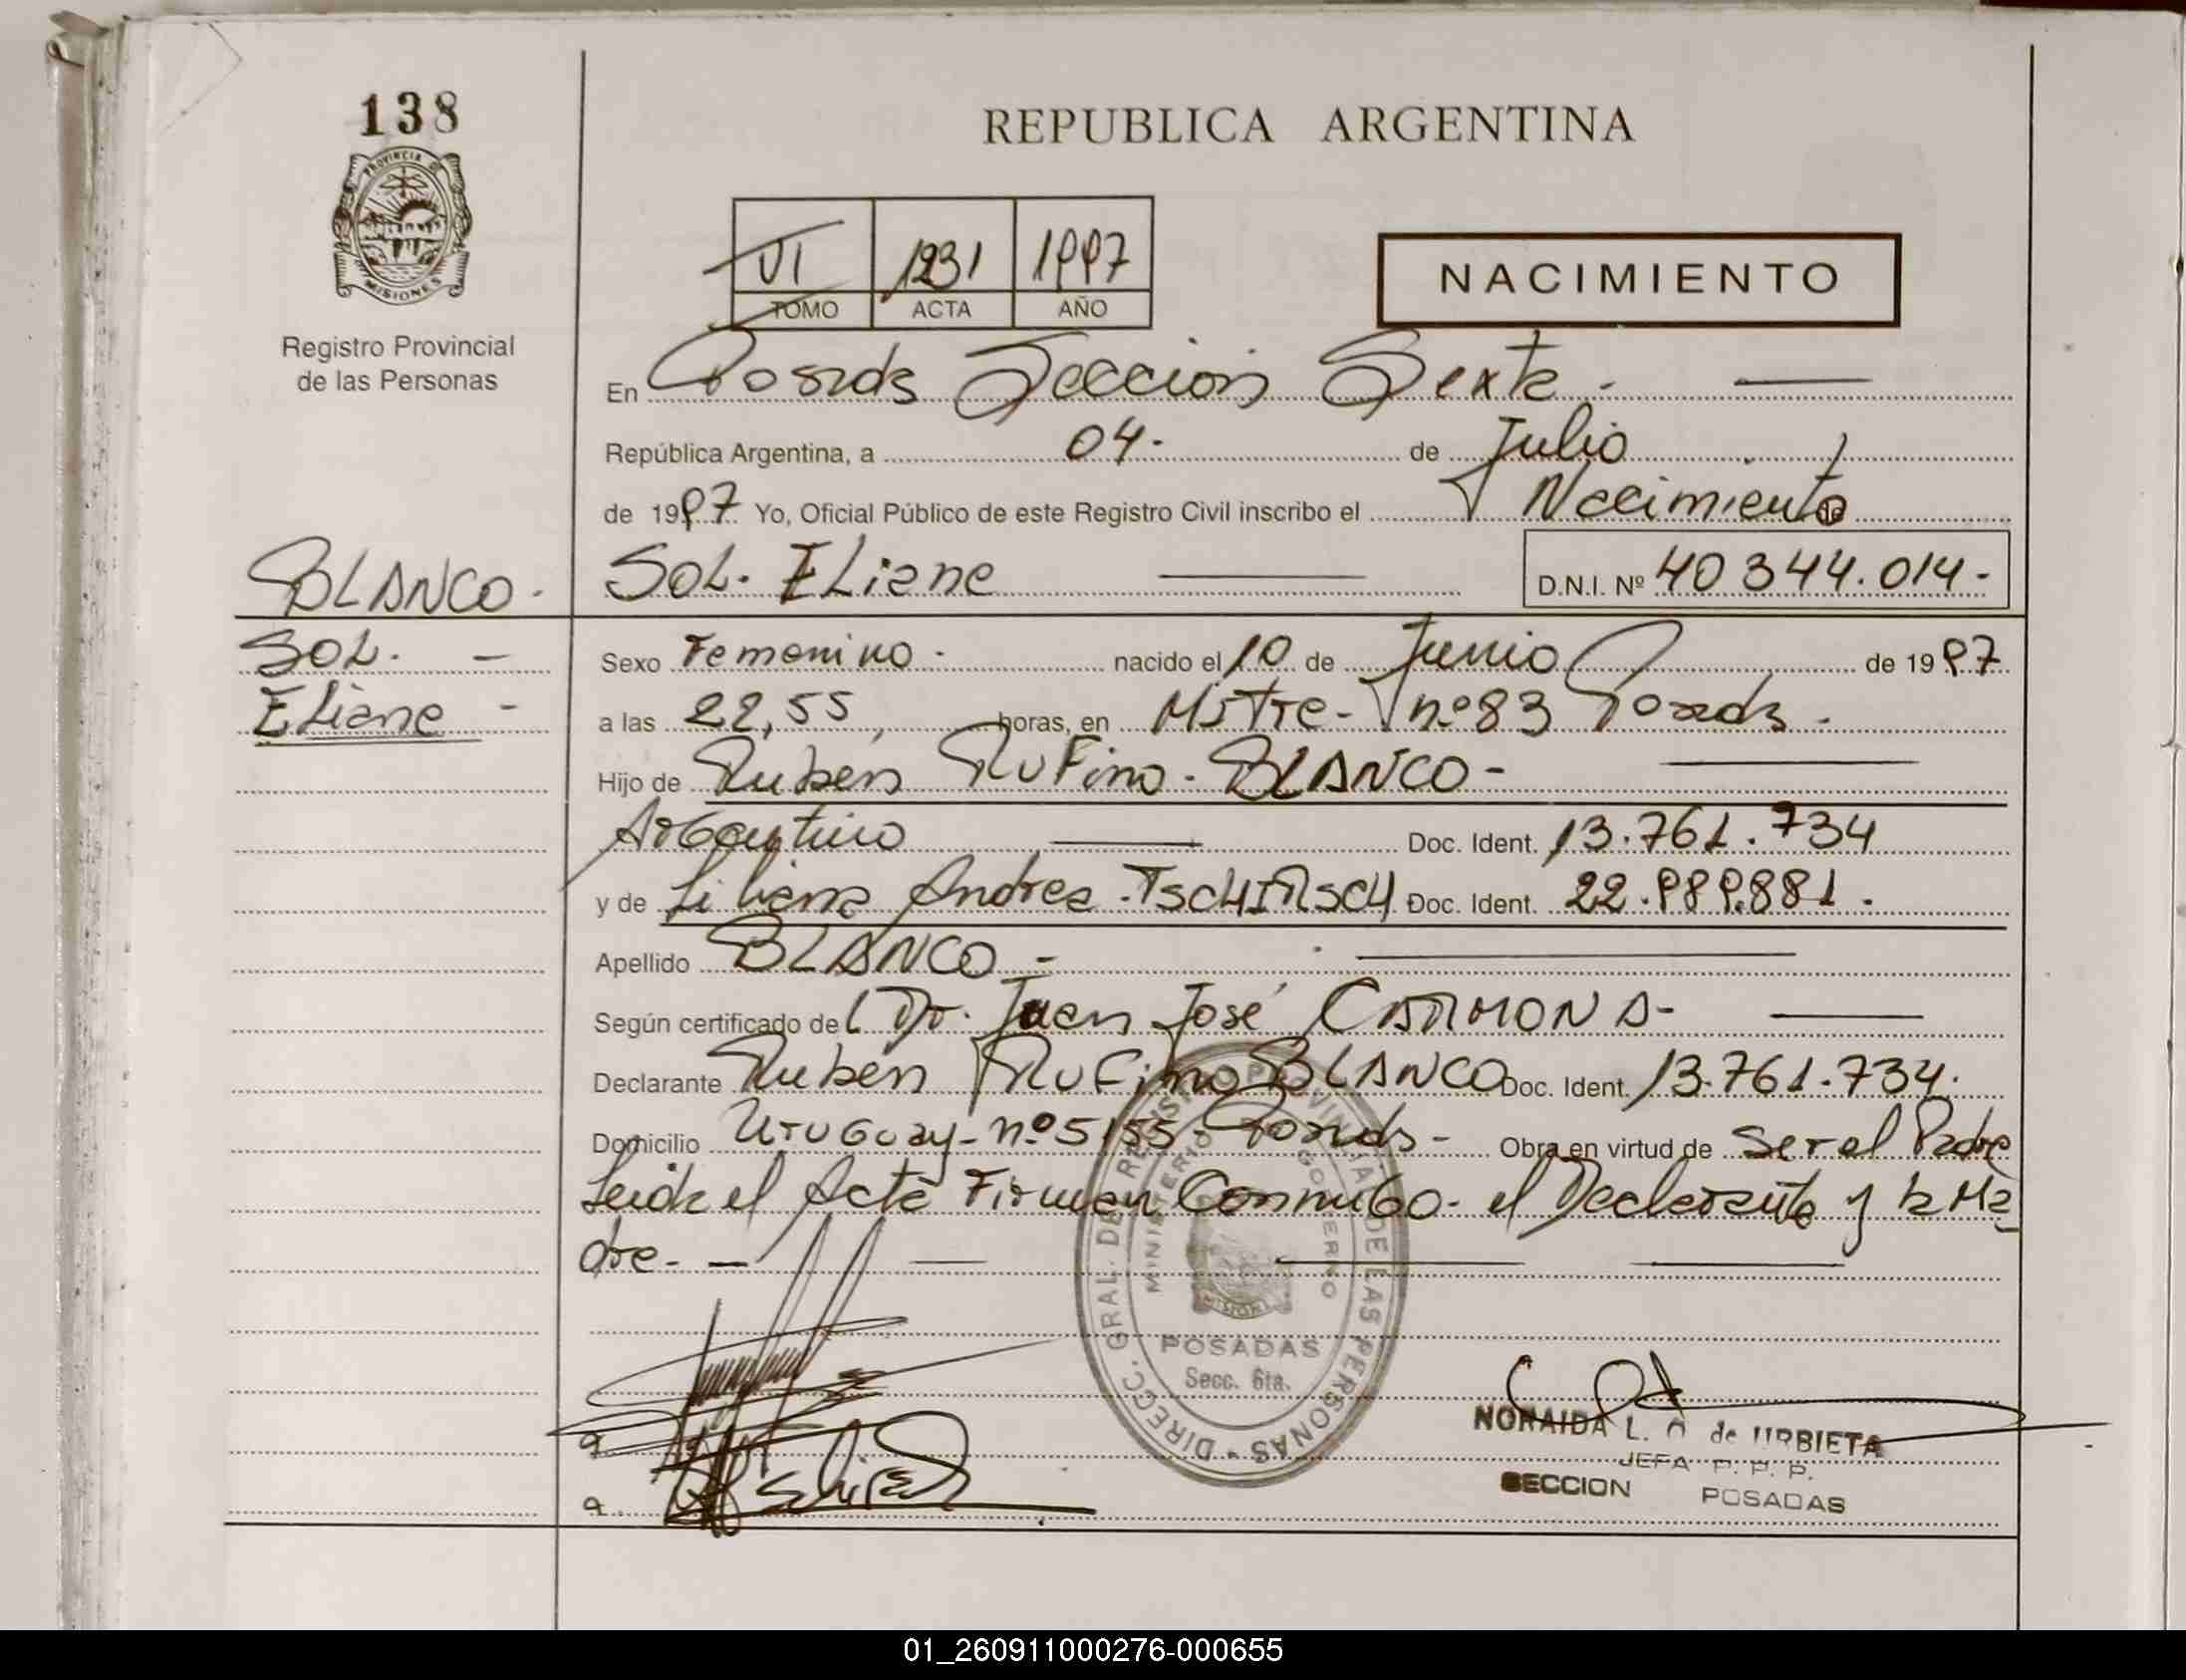 138
PROVINCIA DE
MISIONES
Registro Provincial
de las Personas
REPUBLICA ARGENTINA
VI 1231 1997
TOMO ACTA AÑO
NACIMIENTO
En Posadas Sección Sexta -
República Argentina, a 04- de Julio
de 1997 Yo, Oficial Público de este Registro Civil inscribo el Nacimiento de
BLANCO - SOL. Eliane D.N.I. Nº 40 344.014-
SOL. - Sexo Femenino - nacido el 10 de Junio de 1997
Eliane - a las 22,55 horas, en Mitre - nº 83 Posadas -
Hijo de Rubén Rufino - BLANCO -
Argentino Doc. Ident. 13.761.734
y de Liliana Andrea - TSCHIRSCH Doc. Ident. 22.989.881.
Apellido BLANCO -
Según certificado del Dr. Juan José CARMONA -
Declarante Rubén Rufino BLANCO Doc. Ident. 13.761.734.
Domicilio Uruguay - nº 5155 - Posadas - Obra en virtud de ser el Padre
Leida el Acta Firman Conmigo - el Declarante y la Ma
dre. -
DIRECC. GRAL. DE REGISTRO PROVINCIAL DE LAS PERSONAS
MINISTERIO GOBIERNO
MISIONES
POSADAS
Secc. 6ta.
NORAIDA L. O. de URBIETA
JEFA P. P. P.
SECCION POSADAS
01_260911000276-000655